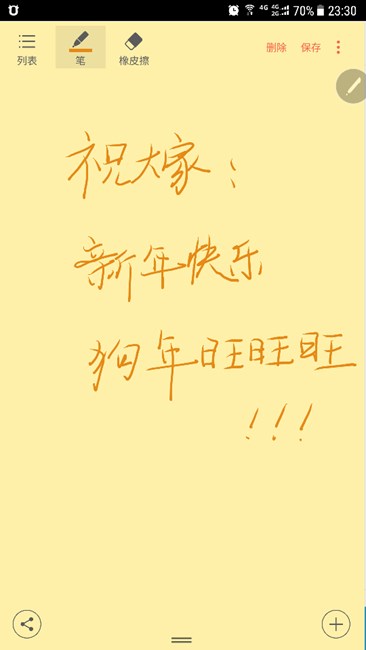 4G 4G 2G 4G 70% 23:30
列表 笔 橡皮擦 删除 保存
祝大家:
新年快乐
狗年旺旺旺
!!!